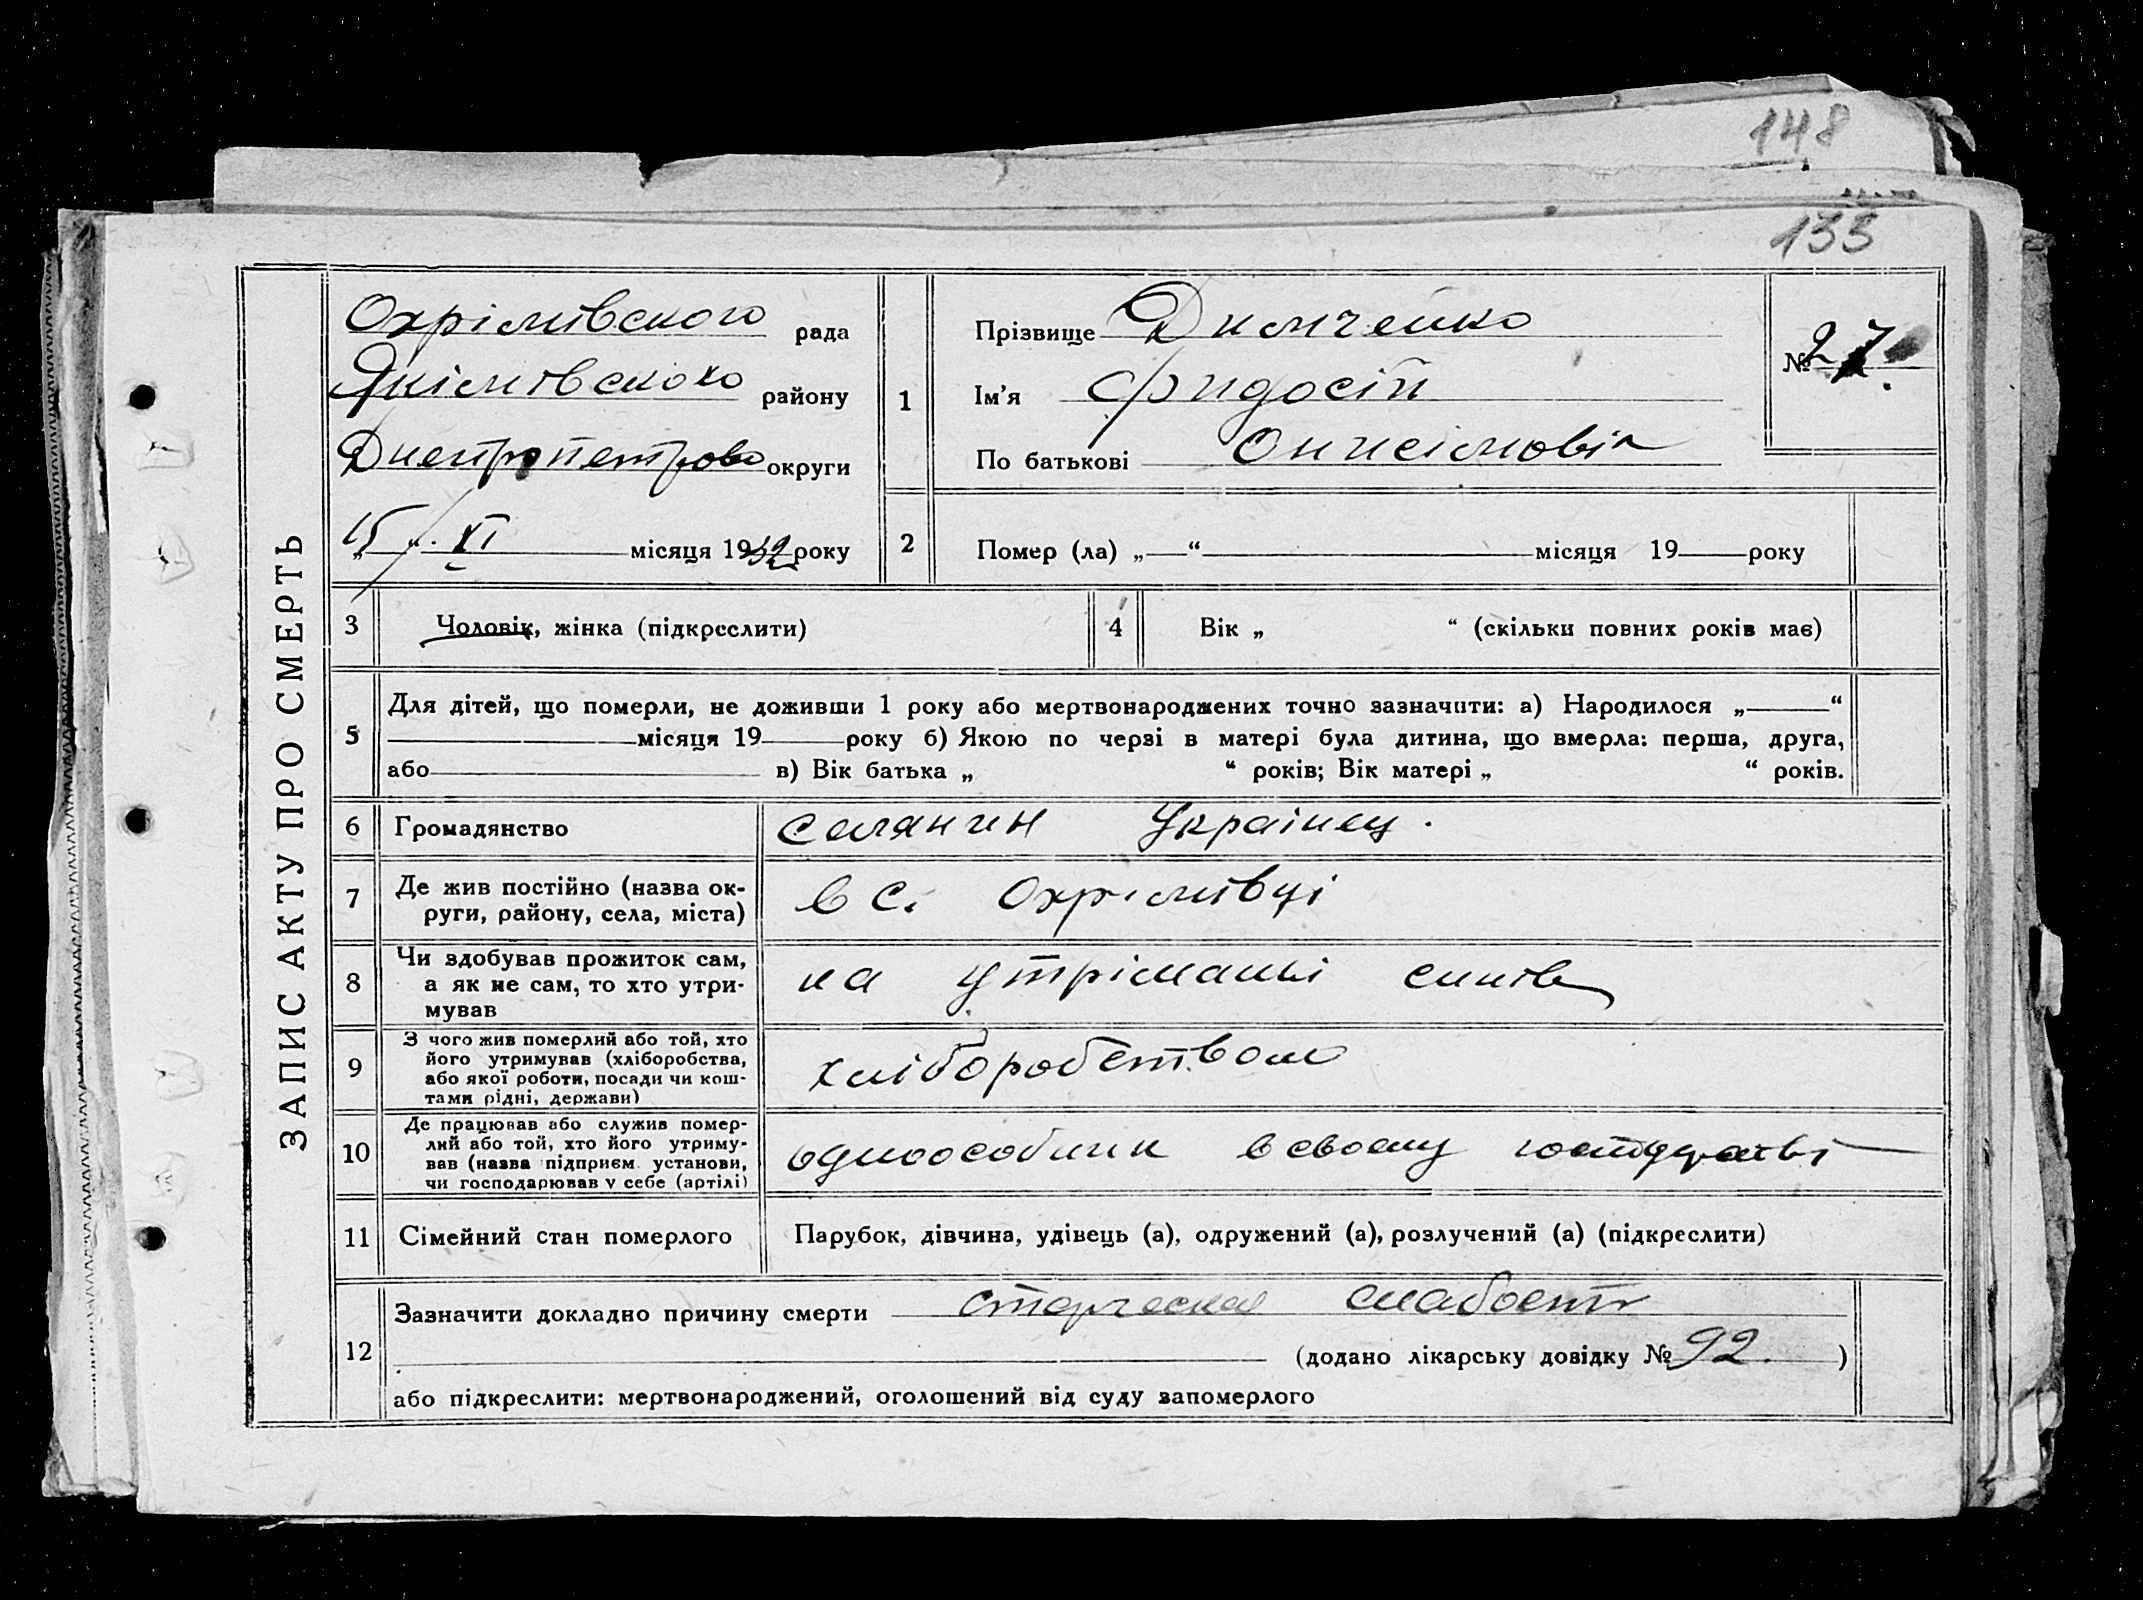 148
133
ЗАПИС АКТУ ПРО СМЕРТЬ
Охрімівського рада
Якімівського району
Днепропетровс округи
„15“ XI місяця 1932 року
1
Прізвище Димченко
Ім'я Фидосій
По батькові Онисімовіч
№ 27
2
Помер (ла) „ “ місяця 19 року
3
Чоловік, жінка (підкреслити)
4
Вік „ “ (скільки повних років має)
5
Для дітей, що померли, не доживши 1 року або мертвонароджених точно зазначити: а) Народилося „ “
місяця 19 року б) Якою по черзі в матері була дитина, що вмерла: перша, друга,
або в) Вік батька „ “ років; Вік матері „ “ років.
6
Громадянство
селянин Українец.
7
Де жив постійно (назва ок-
руги, району, села, міста)
в с. Охрімівці
8
Чи здобував прожиток сам,
а як не сам, то хто утри-
мував
на утріманні синів
9
З чого жив померлий або той, хто
його утримував (хліборобства,
або якої роботи, посади чи кош-
тами рідні, держави)
хліборобством
10
Де працював або служив помер-
лий або той, хто його утриму-
вав (назва підприєм. установи,
чи господарював у себе (артілі)
одноособник в своему
11
Сімейний стан померлого
Парубок, дівчина, удівець (а), одружений (а), розлучений (а) (підкреслити)
12
Зазначити докладно причину смерти старческая слабость
(додано лікарську довідку № 92. )
або підкреслити: мертвонароджений, оголошений від суду запомерлого